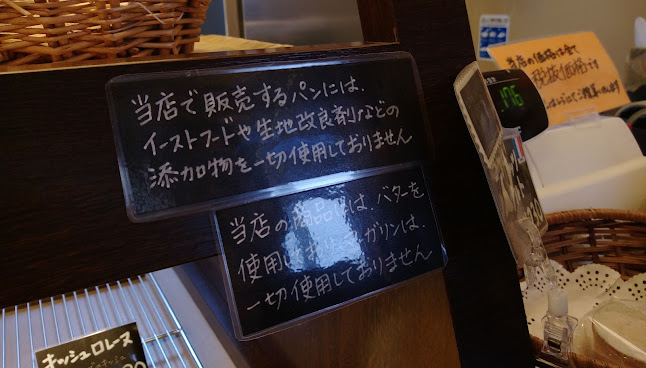 当店で販売するパンには、
イーストフードや生地改良剤などの
添加物を一切使用しておりません
当店の商品には、バターを
使用しており、マーガリンは、
一切使用しておりません
当店の価格は全て
税抜価格です
176
キッシュロレーヌ